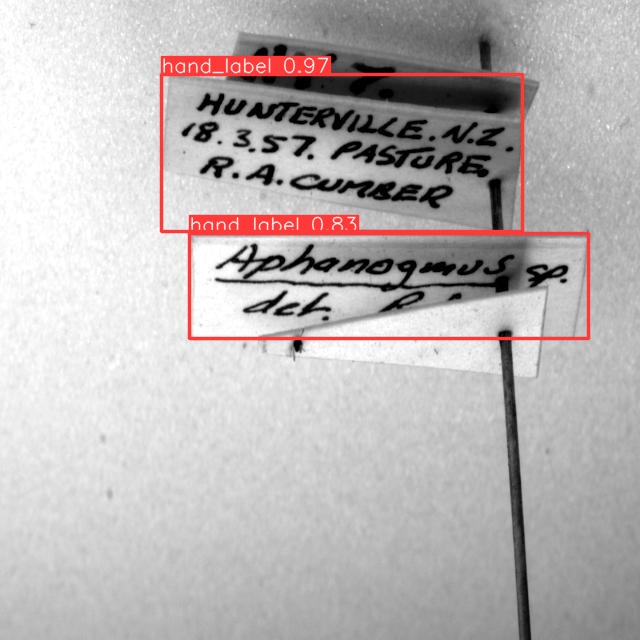 hand_label 0.97
HUNTERVILLE. N.Z.
18.3.57. PASTURE.
R.A. CUMBER
hand_label 0.83
Aphanogmus sp.
det.